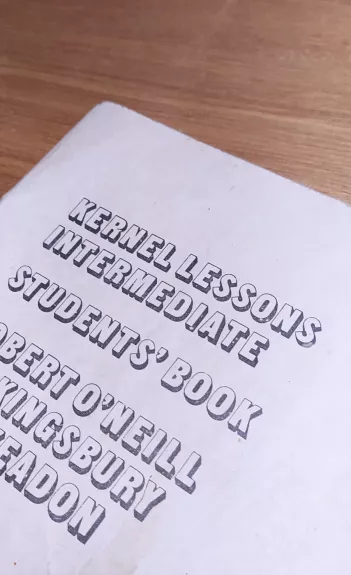 KERNEL LESSONS
INTERMEDIATE
STUDENTS' BOOK
O'NEILL
KINGSBURY